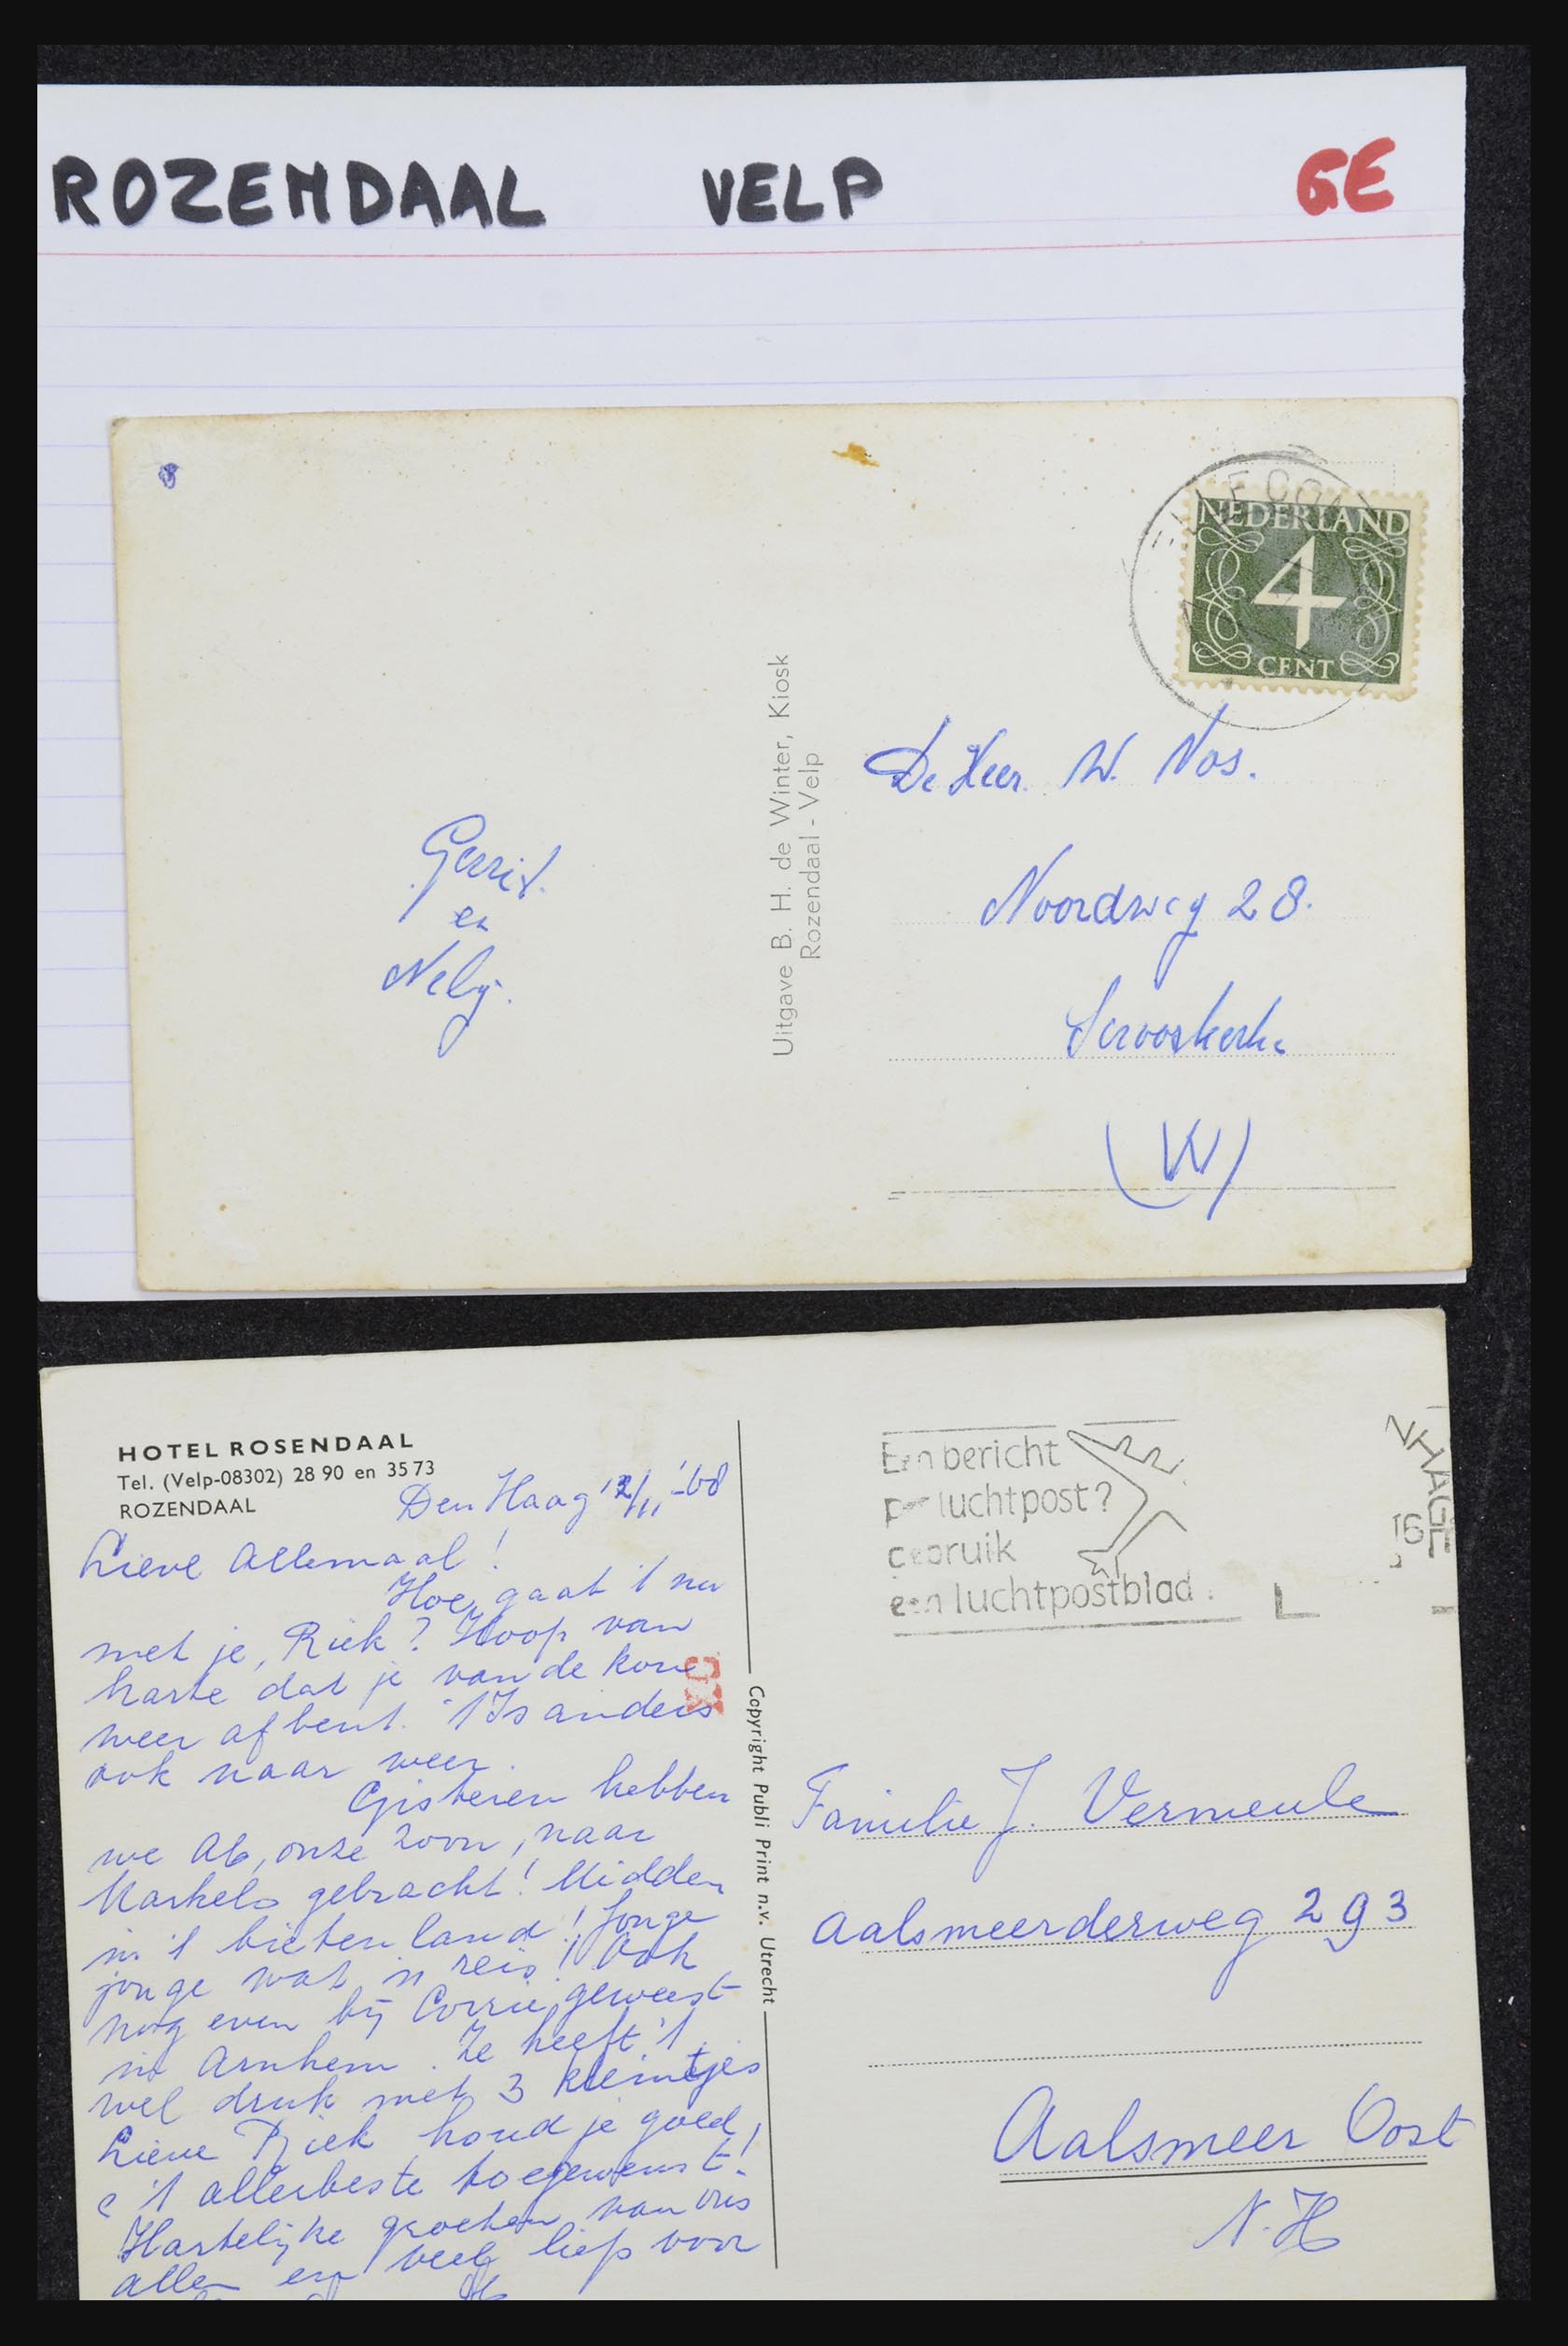 ROZENDAAL VELP GE
8
ELLECOM
NEDERLAND
4
CENT
De Heer W. Vos.
Noordweg 28.
Serooskerke
(W)
Gerrit
en
Nelly.
Uitgave B. H. de Winter, Kiosk
Rozendaal - Velp
HOTEL ROSENDAAL
Tel. (Velp-08302) 28 90 en 35 73
ROZENDAAL
Den Haag 12/11 '-68
Lieve Allemaal!
Hoe gaat 't nu
met je, Riek? Hoop van
harte dat je van de kou
weer af bent. 't Is anders
ook naar weer.
Gisteren hebben
we Ab, onze zoon, naar
Markelo gebracht! Midden
in 't bietenland! Jonge
jonge wat 'n reis! Ook
nog even bij Corrie geweest
in Arnhem. Ze heeft 't
wel druk met 3 kleintjes
Lieve Riek houd je goed
e 't allerbeste toegewenst!
Hartelijke groeten van ons
allen en veel liefs voor
Copyright Publi Print n.v. Utrecht
Een bericht
per luchtpost?
gebruik
een luchtpostblad.
NHAGE
16
Familie J. Vermeule
Aalsmeerderweg 293
Aalsmeer Oost
N.H